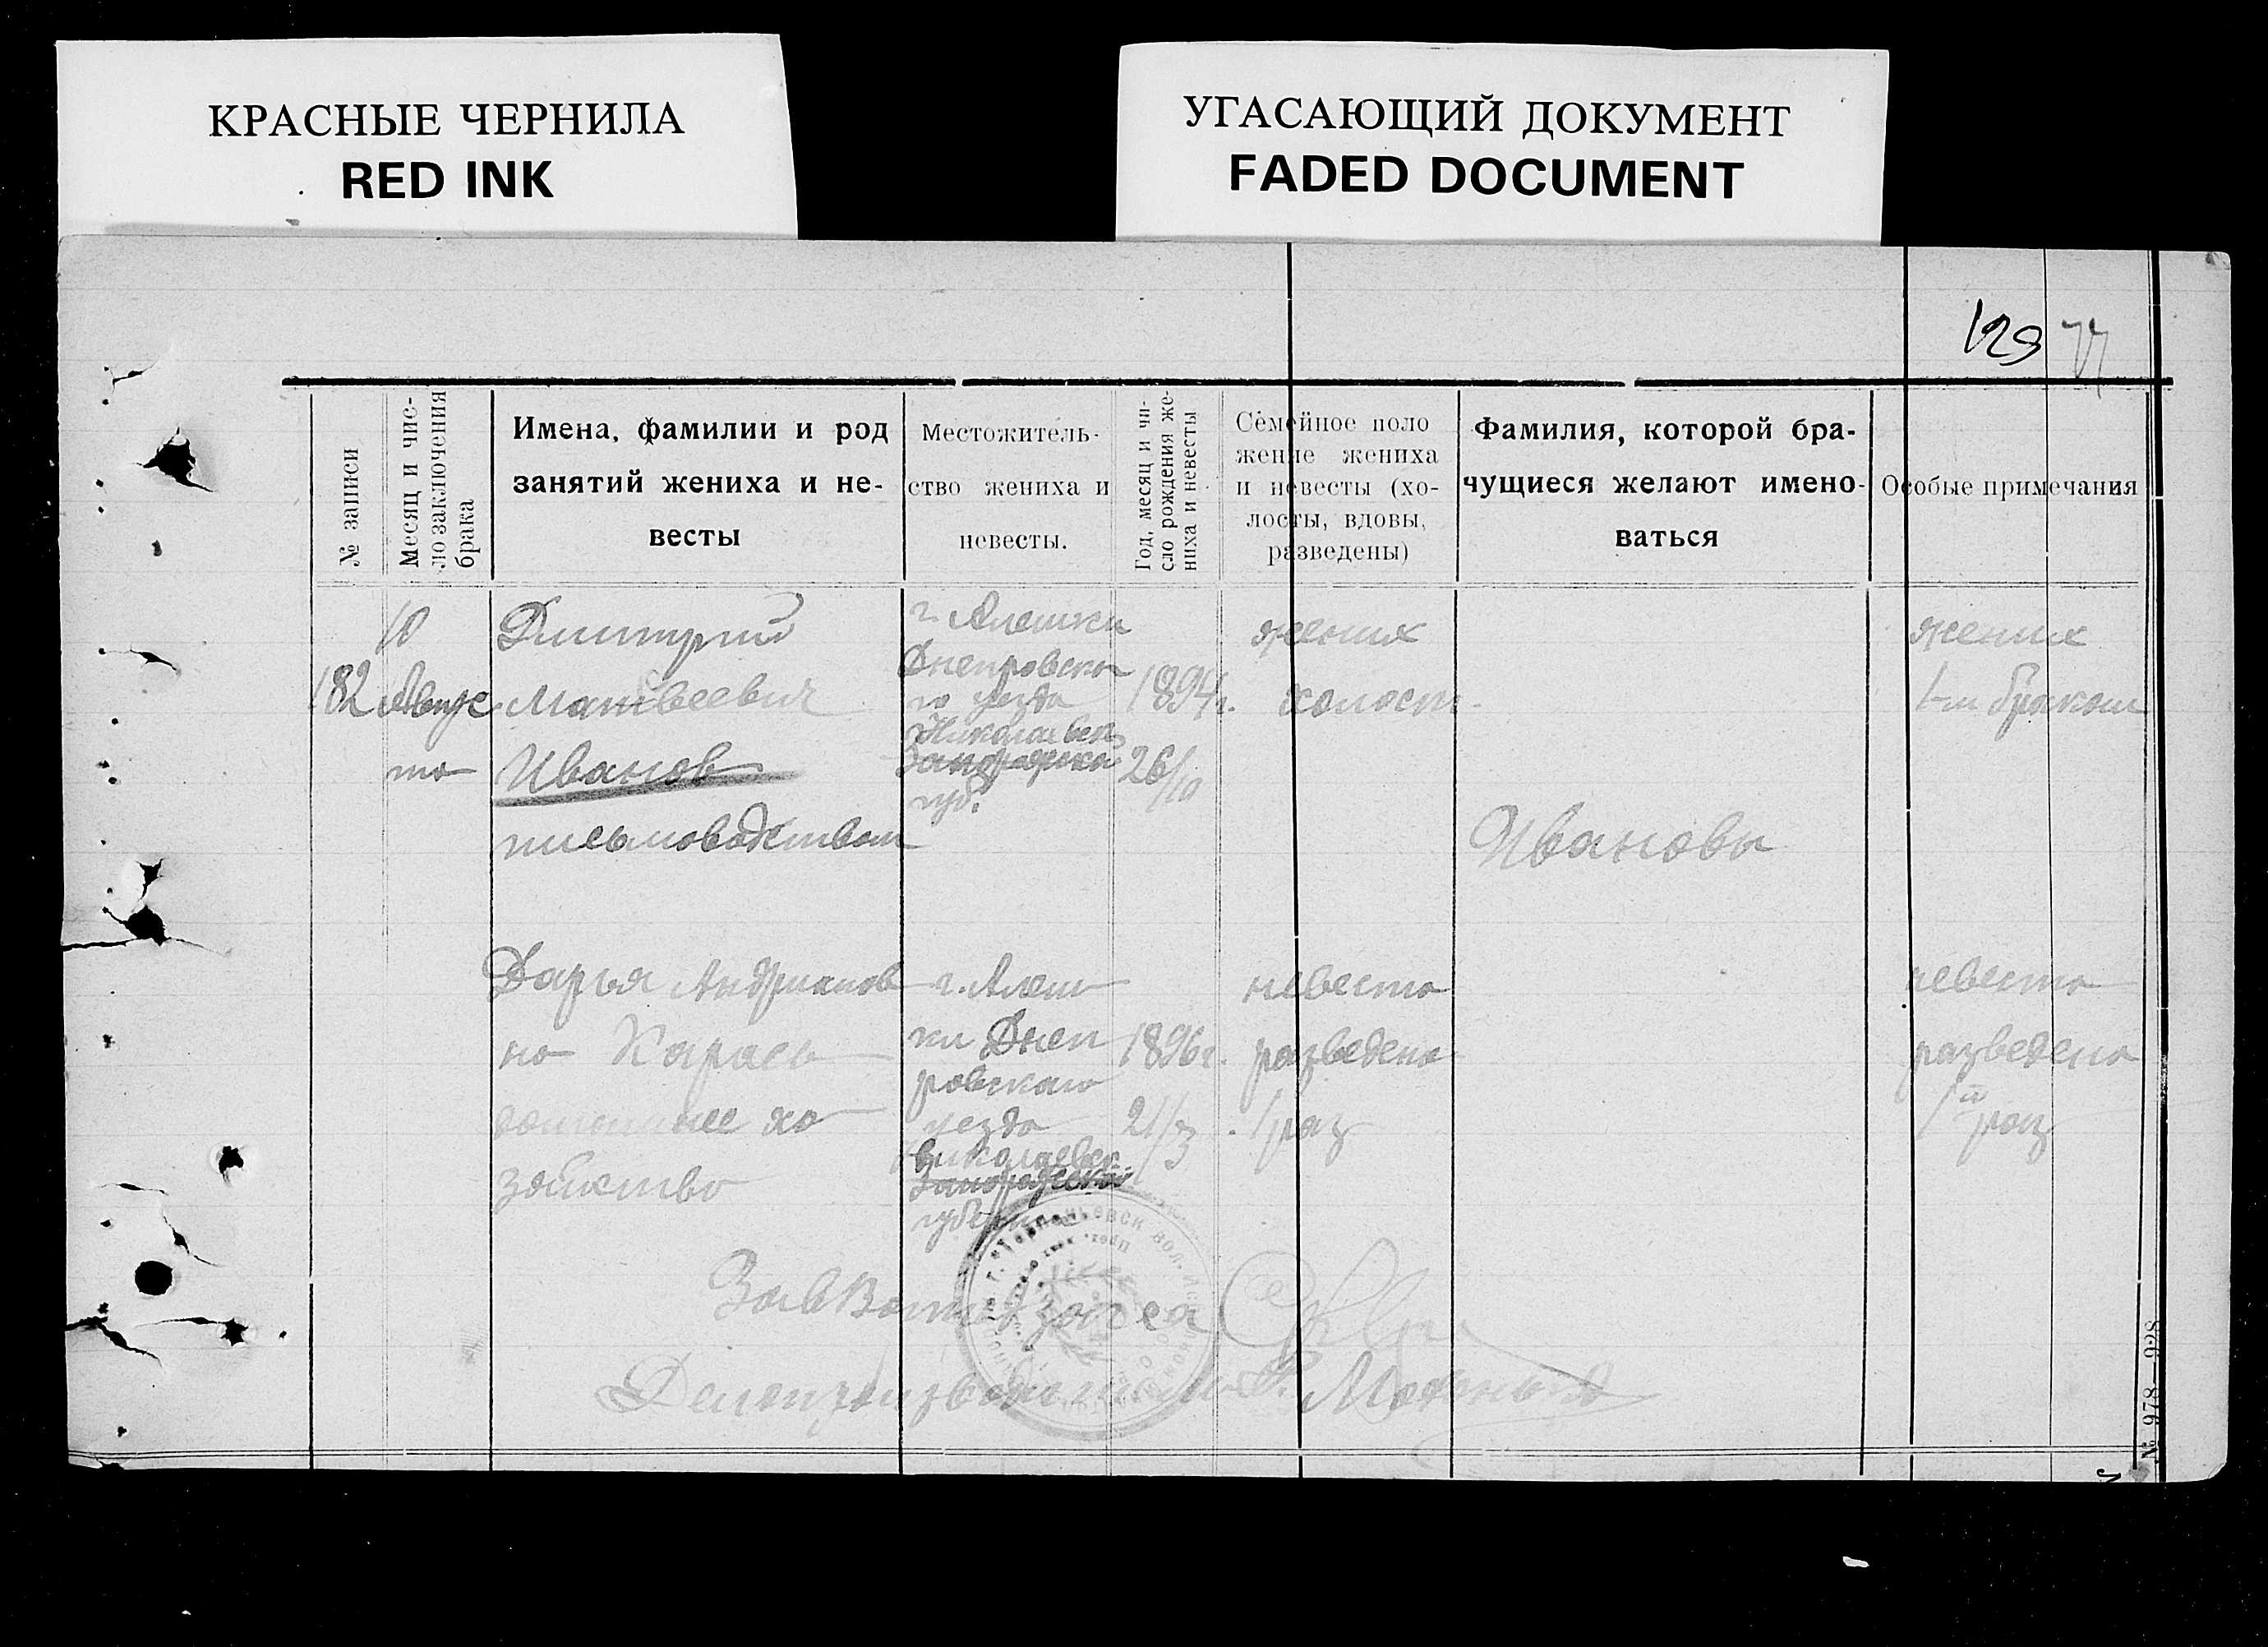 КРАСНЫЕ ЧЕРНИЛА
RED INK
УГАСАЮЩИЙ ДОКУМЕНТ
FADED DOCUMENT
129 77
№ записи
Месяц и чис-
ло заключения
брака
Имена, фамилии и род
занятий жениха и не-
весты
Местожитель-
ство жениха и
невесты.
Год, месяц и чи-
сло рождения же-
ниха и невесты
Семейное поло
жение жениха
и невесты (хо-
лосты, вдовы,
разведены)
Фамилия, которой бра-
чущиеся желают имено-
ваться
Особые примечания
182
10
Авгус
та
Дмитрий
Матвеевич
Иванов
письмоводством
г. Алешки
Днепровско
го уезда
Николаевск
Запорожско
губ.
1894г.
26/10
жених
холост
Ивановы
жених
1-м браком
Дарья Андрианов
на Карась
домашнее хо
зяйство
г. Алеш
ки Днеп
ровского
уезда
Николаевск.
Запорожской
губернии
1896г.
21/3
невеста
разведена
1 раз
невеста
разведена
1й раз
Зав Волит загса
Делопроизводитель
№ 978—928